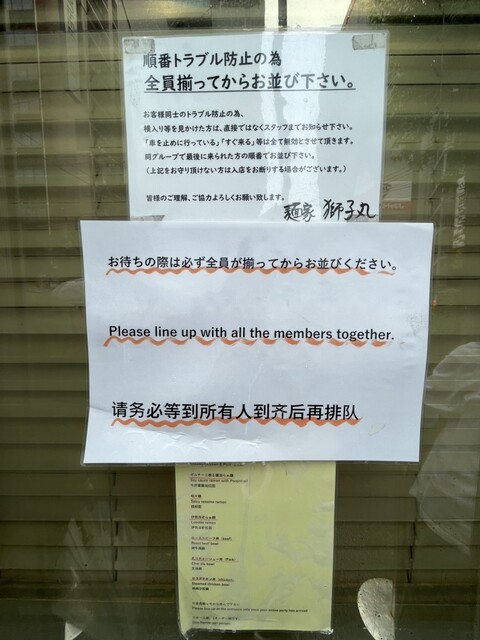 順番トラブル防止の為
全員揃ってからお並び下さい。
お客様同士のトラブル防止の為、
横入り等を見かけた方は、直接ではなくスタッフまでお知らせ下さい。
「車を止めに行っている」「すぐ来る」等は全て無効とさせて頂きます。
同グループで最後に来られた方の順番でお並び下さい。
(上記をお守り頂けない方は入店をお断りする場合がございます。)
皆様のご理解、ご協力よろしくお願い致します。
麺家 獅子丸
お待ちの際は必ず全員が揃ってからお並びください。
Please line up with all the members together.
请务必等到所有人到齐后再排队
Spicy sesame ramen
Lobster ramen
Roast beef bowl
Steamed chicken bowl